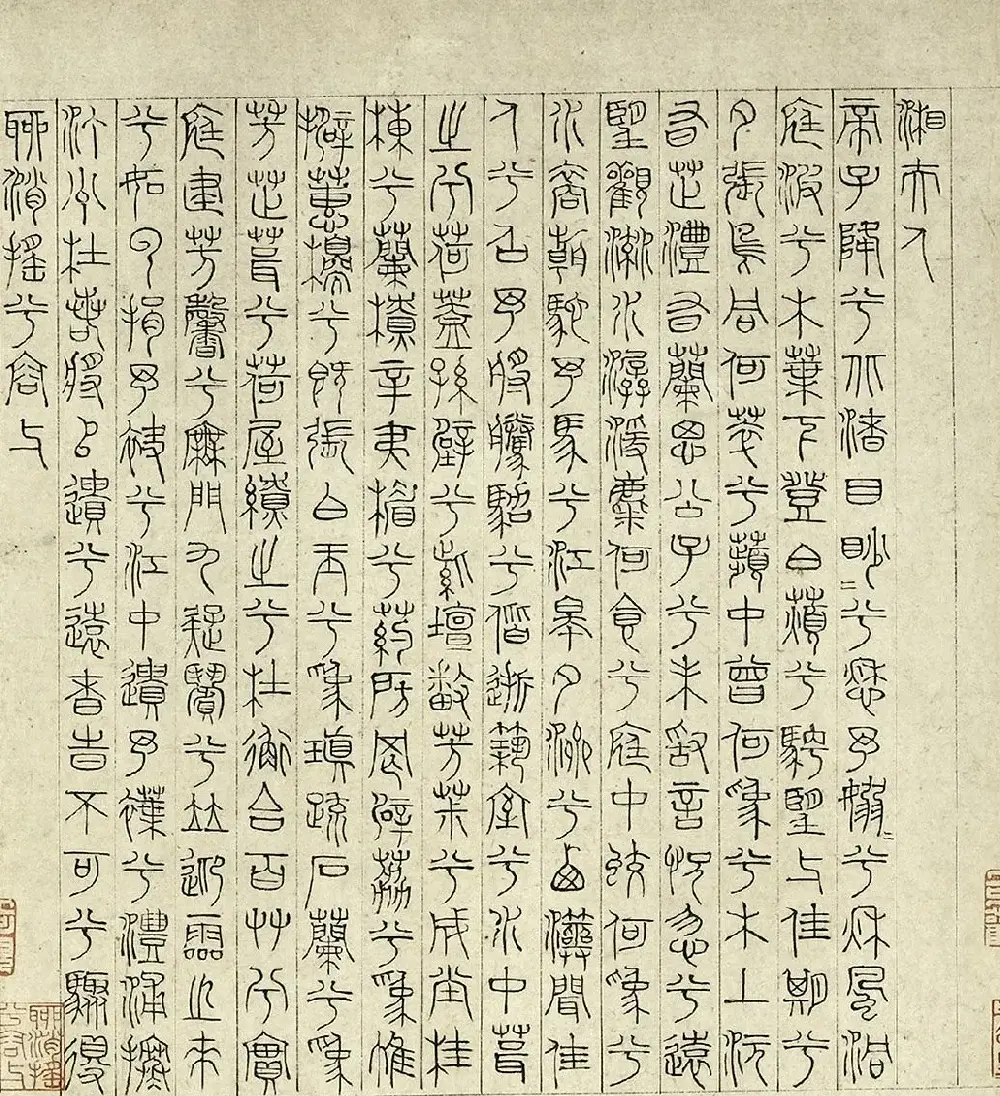 湘夫人
帝子降兮北渚目眇〻兮愁予嫋〻兮秋風洞
庭波兮木葉下登白薠兮騁望与佳期兮
夕張鳥何萃兮蘋中曾何爲兮木上沅
有芷澧有蘭思公子兮未敢言怳忽兮遠
望觀流水潺湲麋何食兮庭中蛟何爲兮
水裔朝馳予馬兮江皋夕濟兮西澨聞佳
人兮召予將騰駕兮偕逝築室兮水中葺
之兮荷蓋蓀壁兮紫壇播芳茮兮成堂桂
棟兮蘭橑辛夷楣兮药房罔薜荔兮爲帷
擗蕙櫋兮既張白玉兮爲瑱疏石蘭兮爲
芳芷葺兮荷屋繚之兮杜衡合百艸兮實
庭建芳馨兮廡門九疑賓兮並迎靈之來
兮如雲捐予袂兮江中遺予褋兮澧浦搴
汀洲杜若將以遺兮遠者時不可兮驟得
聊消搖兮容与
聊消搖兮容与